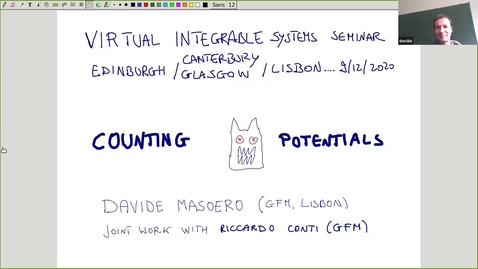 Sans 12
VIRTUAL INTEGRABLE SYSTEMS SEMINAR
EDINBURGH / CANTERBURY GLASGOW / LISBON.... 9/12/2020
COUNTING POTENTIALS
DAVIDE MASOERO (GFM, LISBON)
JOINT WORK WITH RICCARDO CONTI (GFM)
davide